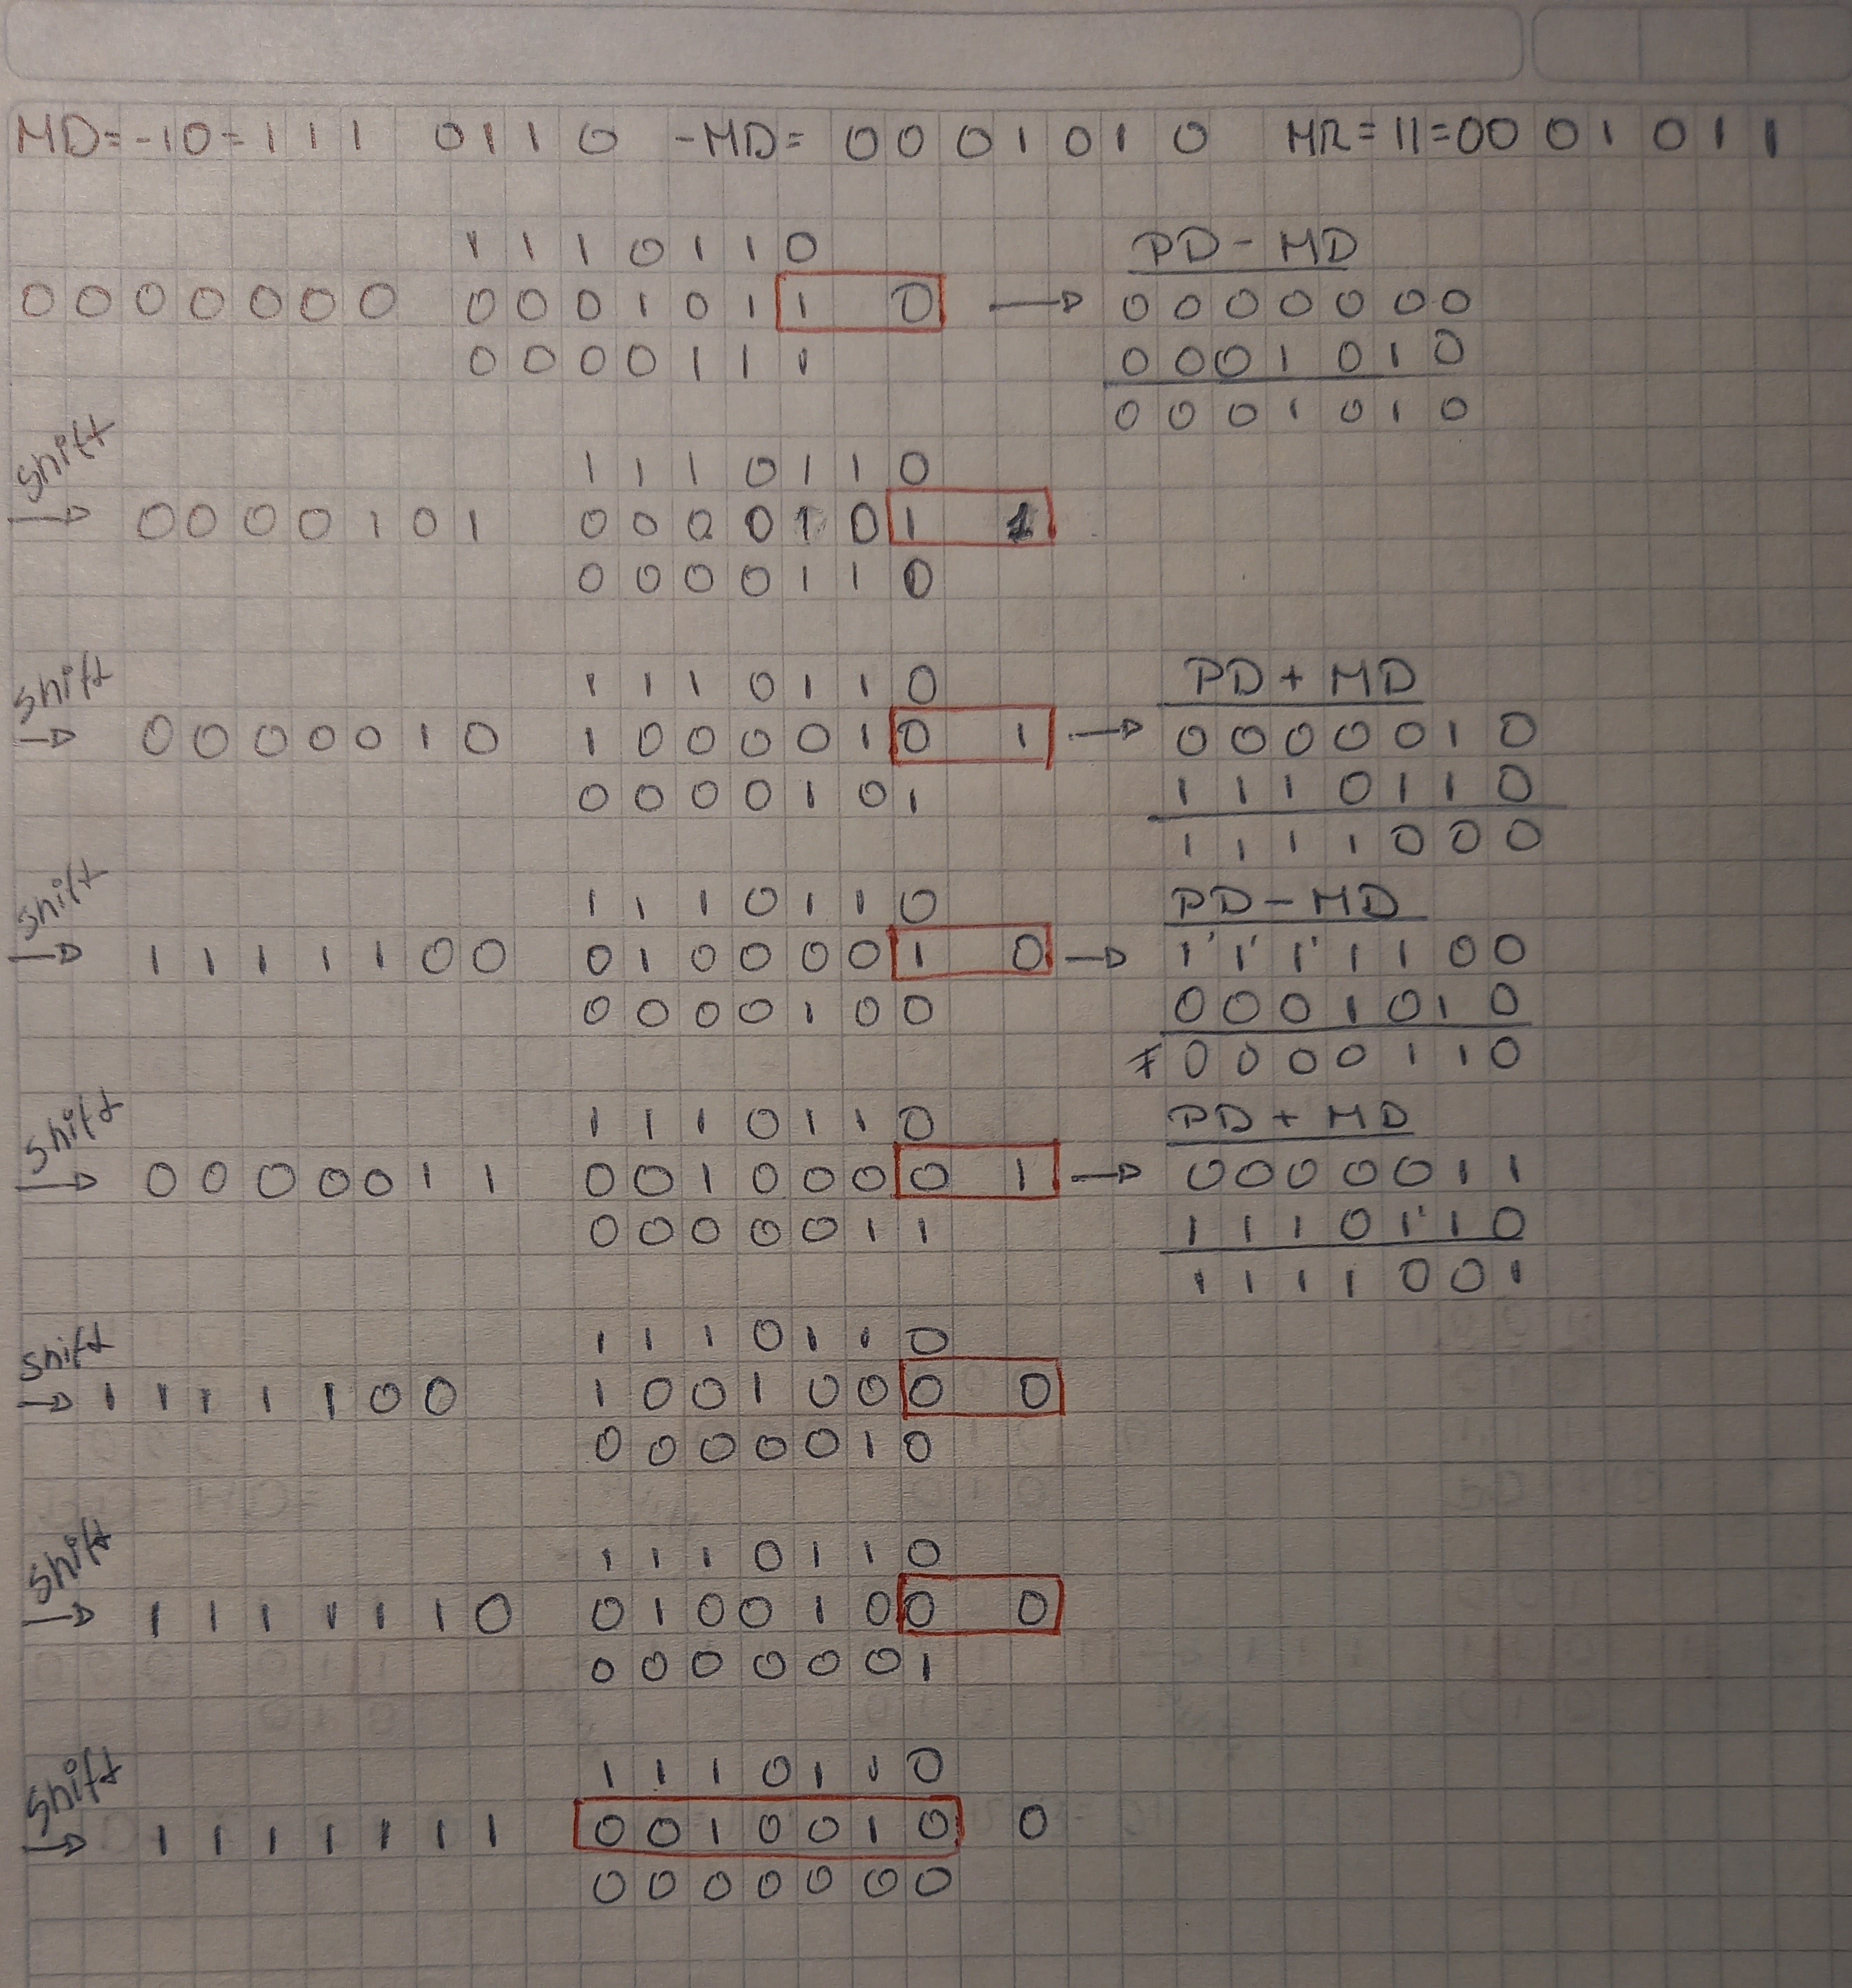 MD=-10=111 0110 -MD= 0001010 MR=11=0001011
1110110 PD-MD
0000000 0001011 0 → 0000000
0000111 0001010
0001010
Shift 1110110
→ 0000101 0000101 1
0000110
Shift 1110110 PD+MD
→ 0000010 1000010 1 → 0000010
0000101 1110110
1111000
Shift 1110110 PD-MD
→ 1111100 0100001 0 → 1111100
0000100 0001010
1 0000110
Shift 1110110 PD+MD
→ 0000011 0010000 1 → 0000011
0000011 1110110
1111001
Shift 1110110
→ 1111100 1001000 0
0000010
Shift 1110110
→ 1111110 0100100 0
0000001
Shift 1110110
→ 1111111 0010010 0
0000000